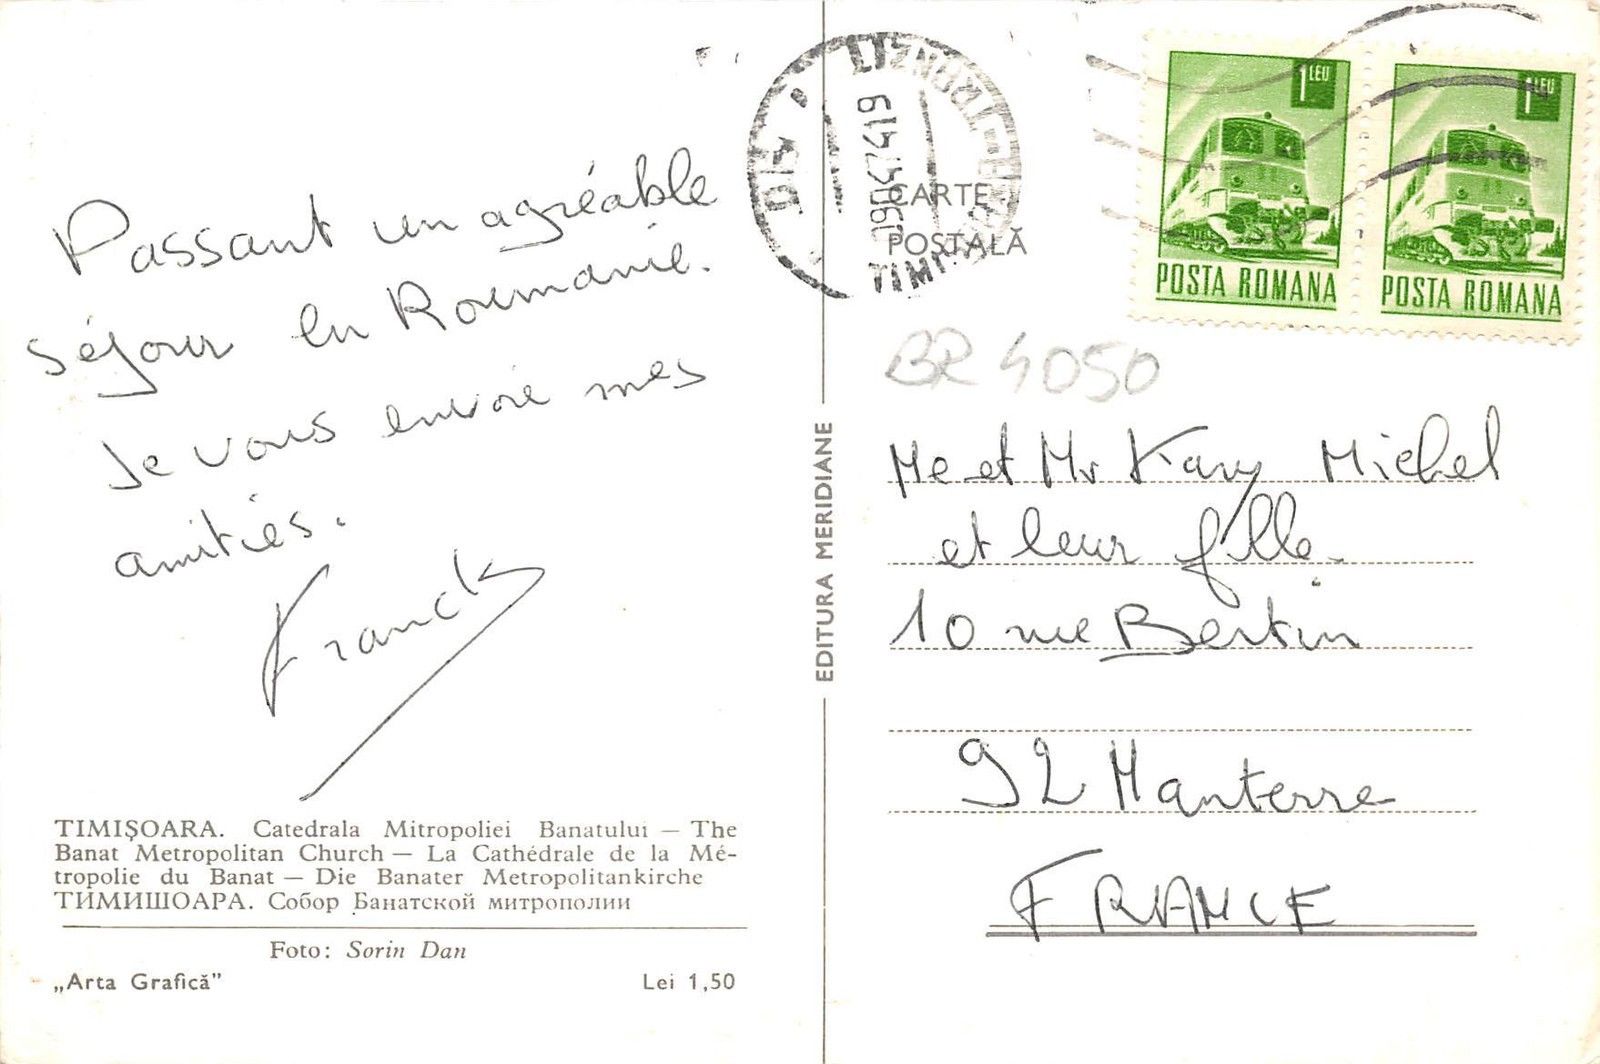 Passant un agréable
séjour en Roumanie.
Je vous envoie mes
amitiés.
Franck
TIMIŞOARA. Catedrala Mitropoliei Banatului — The
Banat Metropolitan Church — La Cathédrale de la Mé-
tropolie du Banat — Die Banater Metropolitankirche
ТИМИШОАРА. Собор Банатской митрополии
Foto: Sorin Dan
„Arta Grafică” Lei 1,50
EDITURA MERIDIANE
CARTE
POŞTALĂ
1 LEU
POSTA ROMANA
1 LEU
POSTA ROMANA
BR 4050
Me et Mr Michel
et leur fille
10 rue Bertin
92 Nanterre
FRANCE